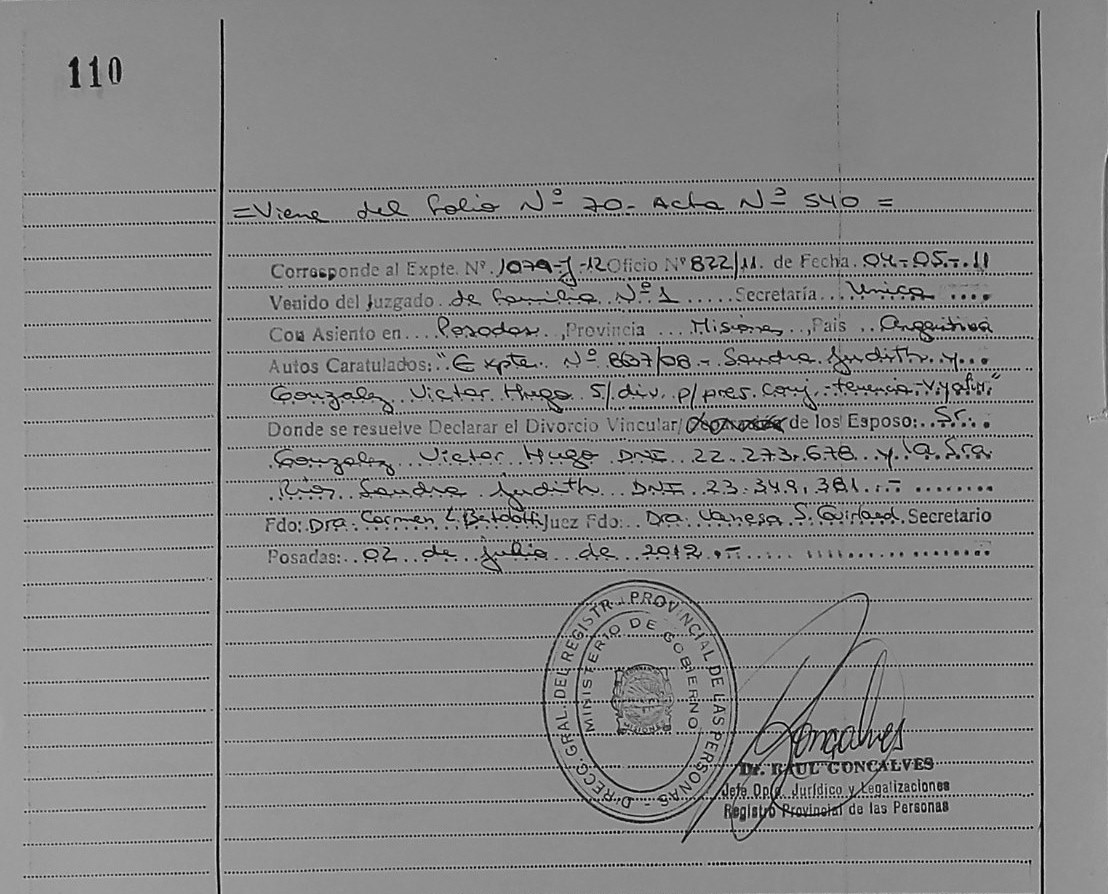 110
=Viene del folio Nº 70- Acta Nº 540=
Corresponde al Expte. Nº 1079-J-12 Oficio Nº 822/11. de Fecha. 04-05-11
Venido del Juzgado de familia Nº 1 ..... Secretaría ... Unica ....
Con Asiento en .. Posadas .. , Provincia ... Misiones .. , País .. Argentina
Autos Caratulados: "Expte. Nº 867/08 - Sandra Judith y...
Gonzalez Victor Hugo S/div. p/pres. conj.-tenencia-
Donde se resuelve Declarar el Divorcio Vincular/ de los Esposo: .. Sr. ..
Gonzalez Victor Hugo DNI 22.273.678 y la Sra
Rios Sandra Judith DNI 23.349.381.-
Fdo: Dra. Carmen Juez Fdo: Dra. Vanesa S. Secretario
Posadas: 02 de julio de 2012.-
DIRECC. GRAL. DEL REGISTR. PROVINCIAL DE LAS PERSONAS -
MINISTERIO DE GOBIERNO
Gonçalves
Dr. RAUL GONCALVES
Jefe Dpto. Jurídico y Legalizaciones
Registro Provincial de las Personas